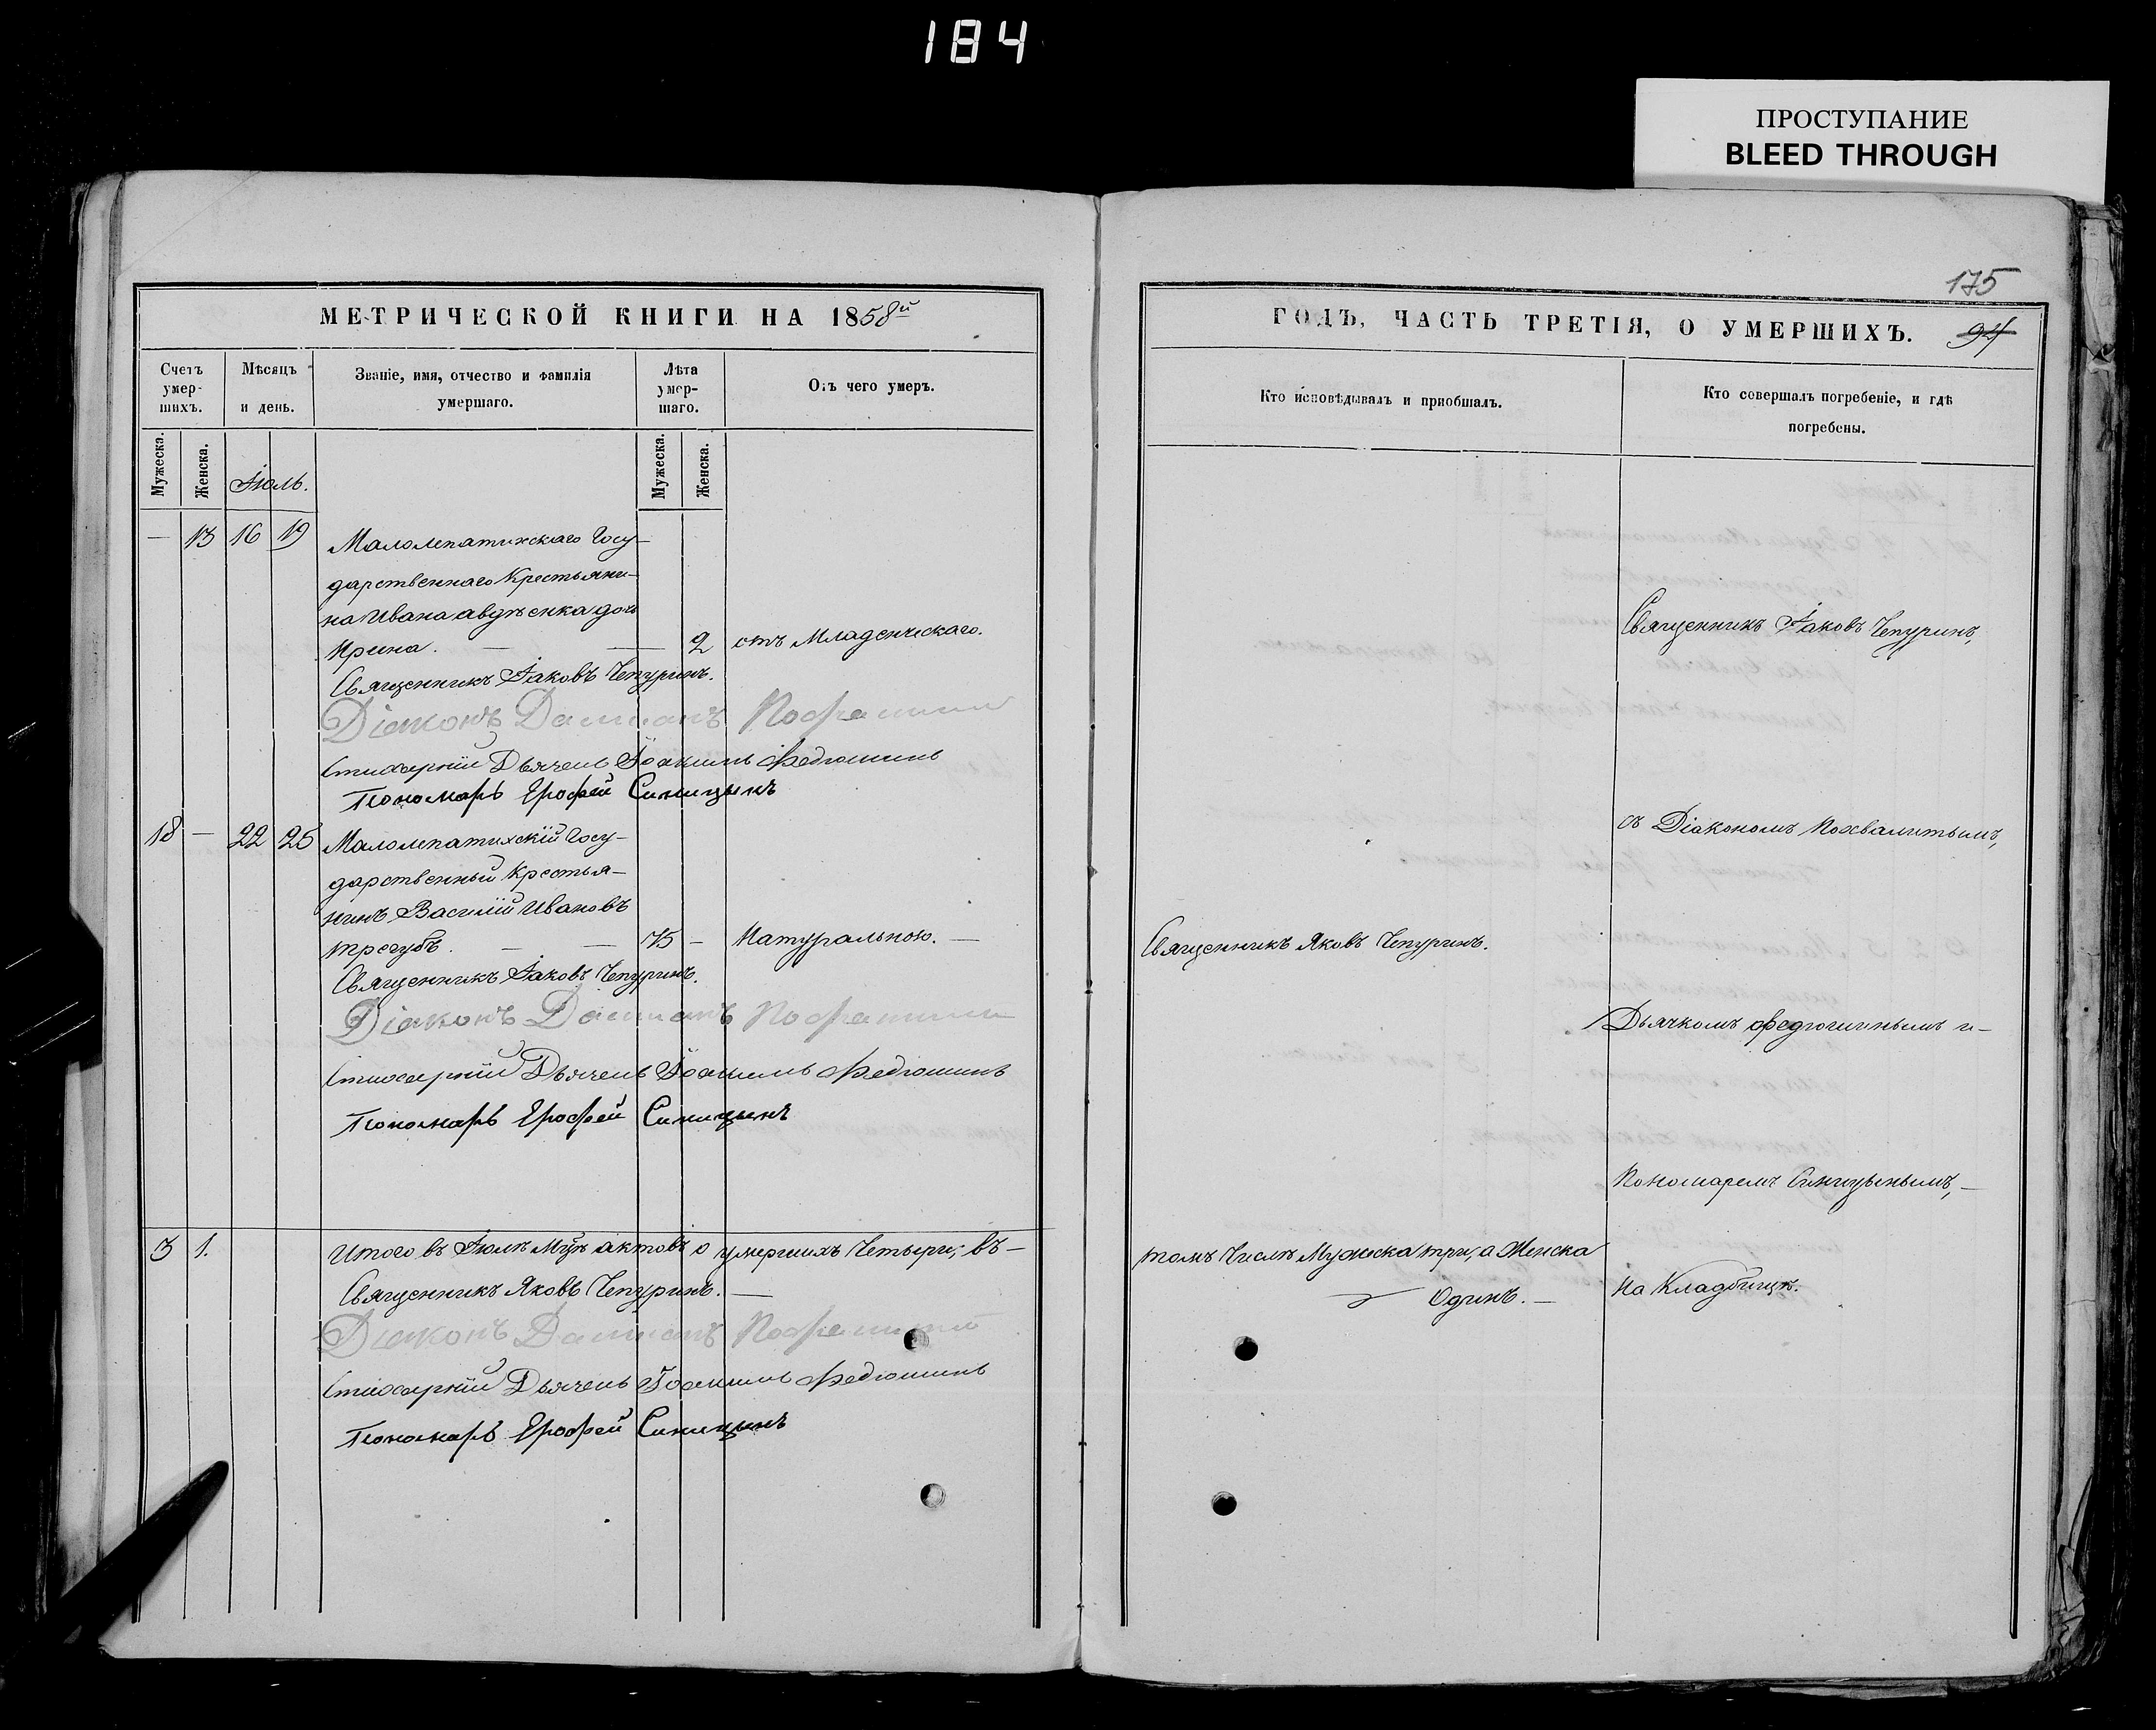 184
ПРОСТУПАНИЕ
BLEED THROUGH
МЕТРИЧЕСКОЙ КНИГИ НА 1858й
Счетъ умер-шихъ.
Мѣсяцъ и день.
Званіе, имя, отчество и фамилія умершаго.
Лѣта умер-шаго.
Отъ чего умеръ.
Мужеска.
Женска.
Іюль.
Мужеска.
Женска.
— 13 16 19 Малолепатихскаго Госу-
дарственнаго Крестьяни-
на Ивана авдѣенка дочь
Ирина. — — 2 отъ Младенческаго.
Священникъ Іаковъ Чепуринъ.
Діаконъ Даміанъ
Стихарній Дьячекъ Іоакимъ Федюшинъ
Пономарь Ерофей Синицынъ
18 — 22 25 Малолепатихскій Госу-
дарственный Крестья-
нинъ Василій Ивановъ
трегубъ. — — 75 — Натуральною. —
Священникъ Іаковъ Чепуринъ.
Діаконъ Даміанъ
Стихарній Дьячекъ Іоакимъ Федюшинъ
Пономарь Ерофей Синицынъ
3 1. Итого въ Іюлѣ Мцѣ актовъ о умершихъ Четыри; въ —
Священникъ Яковъ Чепуринъ. —
Діаконъ Даміанъ
Стихарній Дьячекъ Іоакимъ Федюшинъ
Пономарь Ерофей Синицынъ
175
ГОДЪ, ЧАСТЬ ТРЕТІЯ, О УМЕРШИХЪ.
94
Кто исповѣдывалъ и пріобщалъ.
Кто совершалъ погребеніе, и гдѣ погребены.
Священникъ Іаковъ Чепуринъ,
съ Діакономъ Похвалитымъ,
Священникъ Яковъ Чепуринъ.
Дьячкомъ Федюшинымъ и —
Пономаремъ Синицынымъ, —
томъ Числѣ Мужеска три, а Женска
Одинъ. —
На Кладбищѣ.